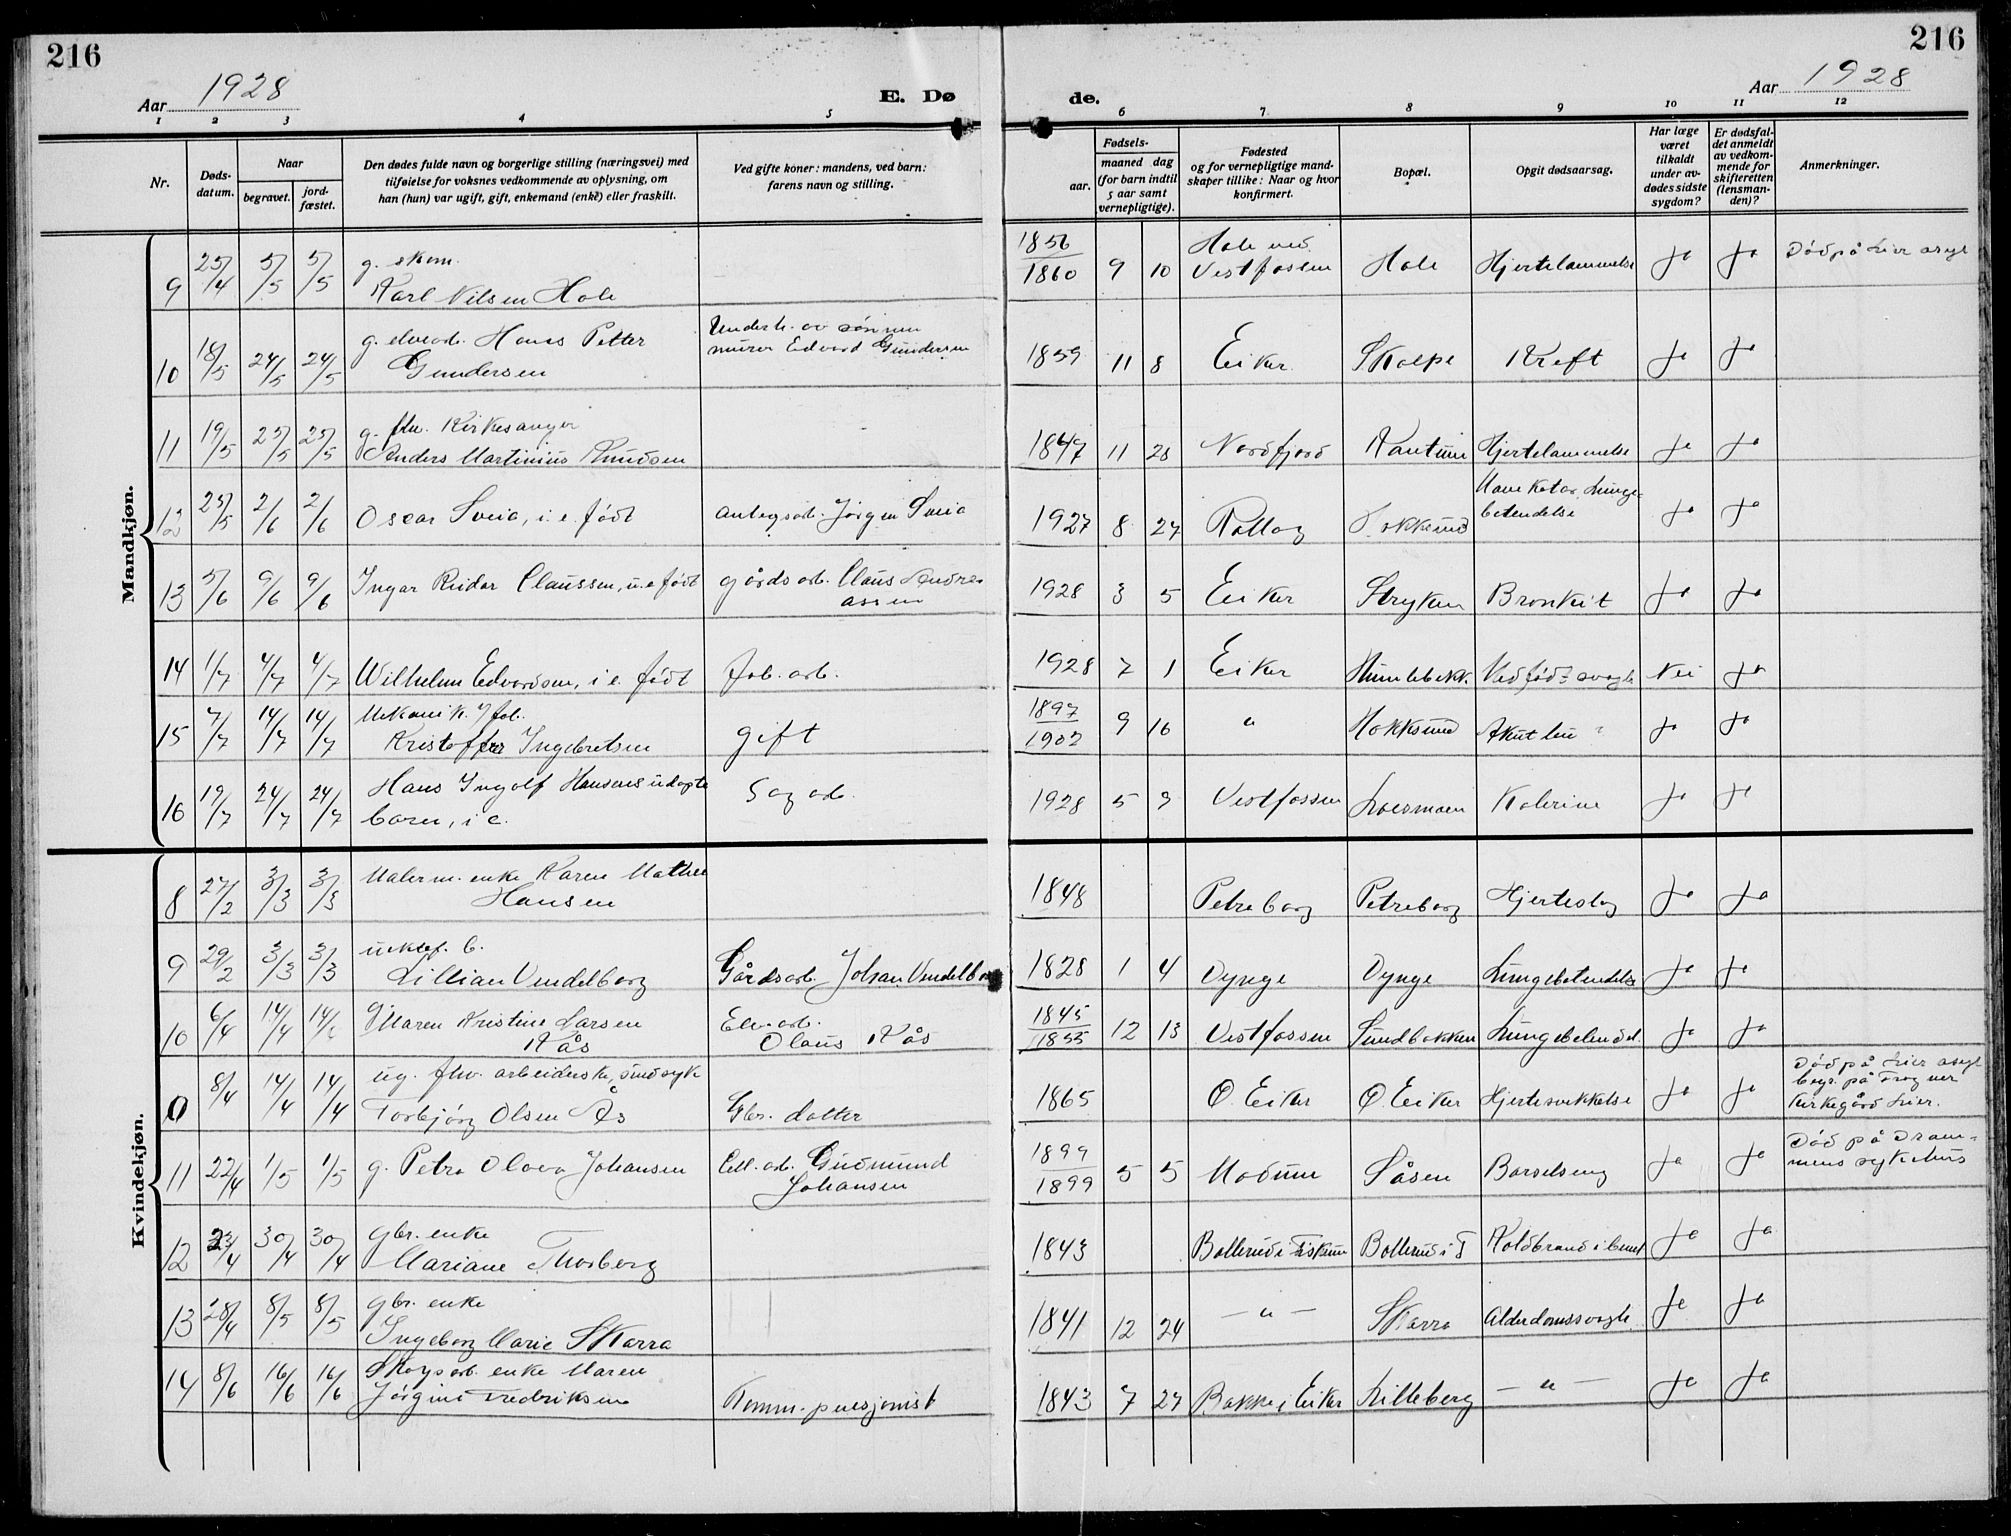 216
216
Aar 1928
E. Dø
de.
Aar 1928
1 2 3 4 5 6 7 8 9 10 11 12
Nr.
Døds-
datum.
Naar
begravet.
jord-
fæstet.
Den dødes fulde navn og borgerlige stilling (næringsvei) med
tilføielse for voksnes vedkommende av oplysning, om
han (hun) var ugift, gift, enkemand (enke) eller fraskilt.
Ved gifte koner: mandens, ved barn:
farens navn og stilling.
Fødsels-
aar.
maaned dag
(for barn indtil
5 aar samt
vernepligtige).
Fødested
og for vernepligtige mand-
skaper tillike: Naar og hvor
konfirmert.
Bopæl.
Opgit dødsaarsag.
Har læge
været
tilkaldt
under av-
dødes sidste
sygdom?
Er dødsfal-
det anmeldt
av vedkom-
mende for
skifteretten
(lensman-
den)?
Anmerkninger.
Mandkjøn.
9 25/4 5/5 5/5 g. skom.
Karl Nilsen Hole
1856
1860 9 10 Hole ved
Vestfossen Hole Hjertelammelse Ja Ja Död på Lier asyl
10 18/5 24/5 24/5 g. elvearb. Hans Petter
Gundersen
Underh. av sönnen
murer Edvard Gundersen
1859 11 8 Eiker Skolpe Kreft Ja Ja
11 19/5 25/5 25/5 g. fhv. Kirkesanger
Anders Martinius Knudsen
1847 11 28 Nordfjord Hjertelammelse Ja Ja
12 25/5 2/6 2/6 Oscar Sveia, i. e. födt anlegsarb. Jörgen Sveia
1927 8 27 Rollag Hokksund Lunge-
betendelse Ja Ja
13 5/6 9/6 9/6 Ingar Reidar Claussen, u. e. födt gårdsarb. Claus Andre-
assen
1928 3 5 Eiker Stryken Bronkit Ja Ja
14 1/7 4/7 4/7 Wilhelm Edvardsen, i. e. födt fab. arb.
1928 7 1 Eiker Humlebekk. Medfödt svagh. Nei Ja
15 7/7 14/7 14/7 Mekanik.
Kristoffer Ingebretsen gift
1897
1902 9 16 " Hokksund Akut Ja Ja
16 19/7 24/7 24/7 Hans Ingolf Hansens udöpte
barn, i e. Sagarb.
1928 5 9 Vestfossen Loesmoen Kolerine Ja Ja
Kvindekjøn.
8 27/2 3/3 3/3 Malerm. enke Karen Mathea
Hansen
1848 Petreborg Petreborg Hjerteslag Ja Ja
9 29/2 3/3 3/3
Lillian Vendelborg Gårdsarb. Johan Vendelborg
1828 1 4 Dynge Dynge Lungebetendelse Ja Ja
10 6/4 14/4 14/4 Maren Kristine Larsen
Kås
Elv. arb.
Olaus Kås
1845
1855 12 13 Vestfossen Sundbakken Lungebetendel. Ja Ja
0 8/4 14/4 14/4 ug. fhv. arbeiderske, sindsyk
Torbjörg Olsen Ås Gbr. datter
1865 Ö. Eiker Ö. Eiker Hjertesvekkelse Ja Ja
Död på Lier asyl
begr. på Frogner
Kirkegård Lier.
11 22/4 1/5 1/5 g. Petra Olava Johansen Cell. arb. Gudmund
Johansen
1899
1899 5 5 Modum Såsen Barselseng Ja Ja
Död på Dram-
mens sykehus
12 23/4 30/4 30/4 gbr. enke
Mariane Thorberg
1843 Bollerud i Fiskum Bollerud i F Koldbrand i benet Ja Ja
13 28/4 8/5 8/5 gbr. enke
Ingeborg Marie Skarra
1841 12 24 — " — Skarra Alderdomssvagh. Ja Ja
14 8/6 16/6 16/6 Skogsarb. enke Maren
Jörgine Fredriksen Komm. pensjonist
1843 7 27 Bakke i Eiker Lilleberg — " — Ja Ja